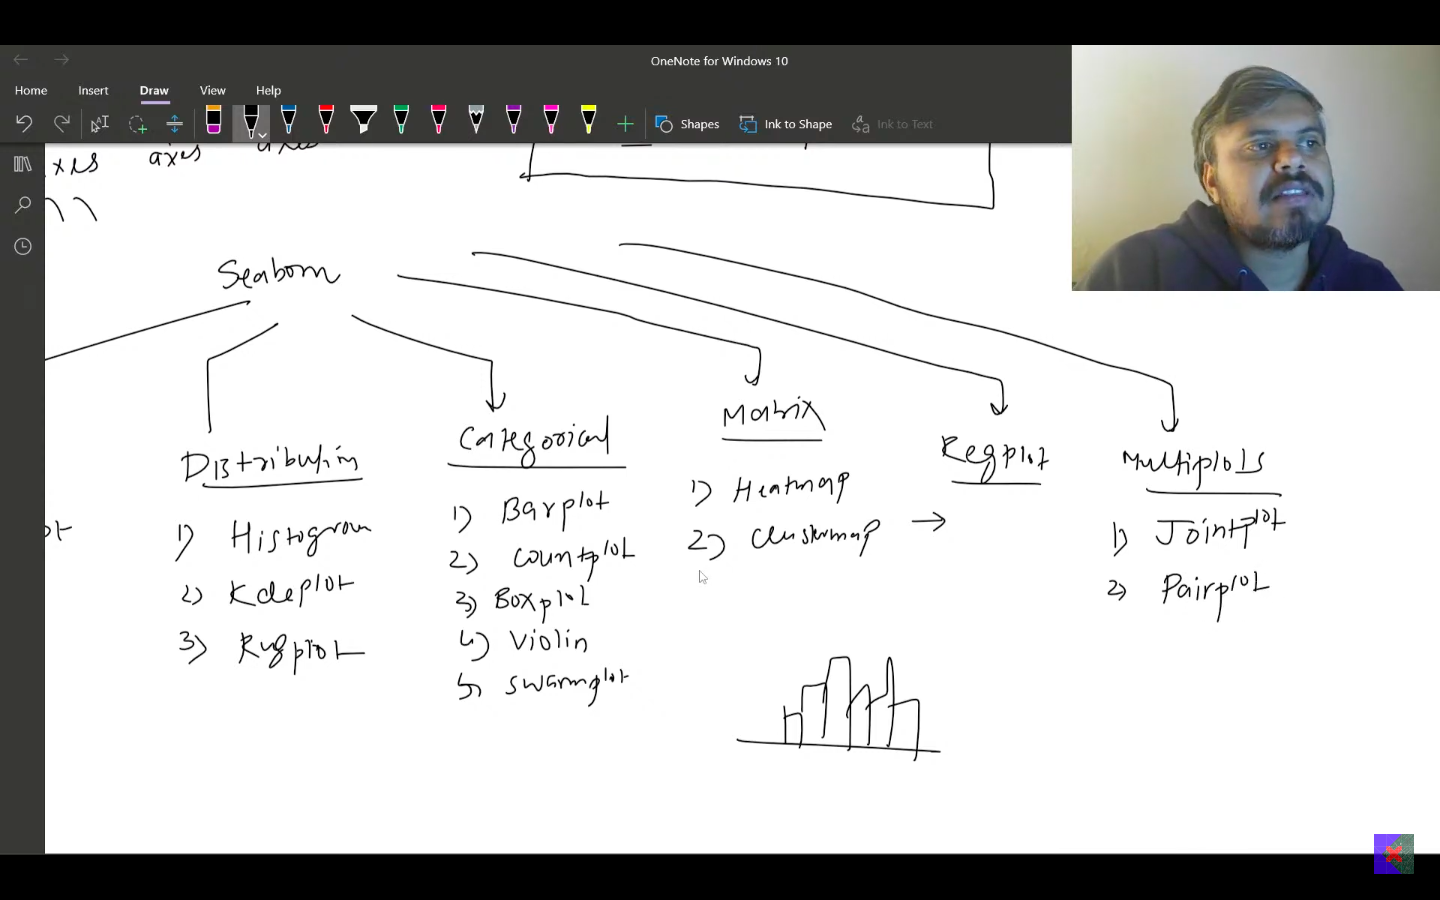 OneNote for Windows 10
Home Insert Draw View Help
Shapes Ink to Shape Ink to Text
xes axes axes
Seaborn
Distribution
1) Histogram
2) Kdeplot
3) Rugplot
Categorical
1) Barplot
2) Countplot
3) Boxplot
4) Violin
5) Swarmplot
Matrix
1) Heatmap
2) Clustermap →
Regplot
Multiplots
1) Jointplot
2) Pairplot
ot